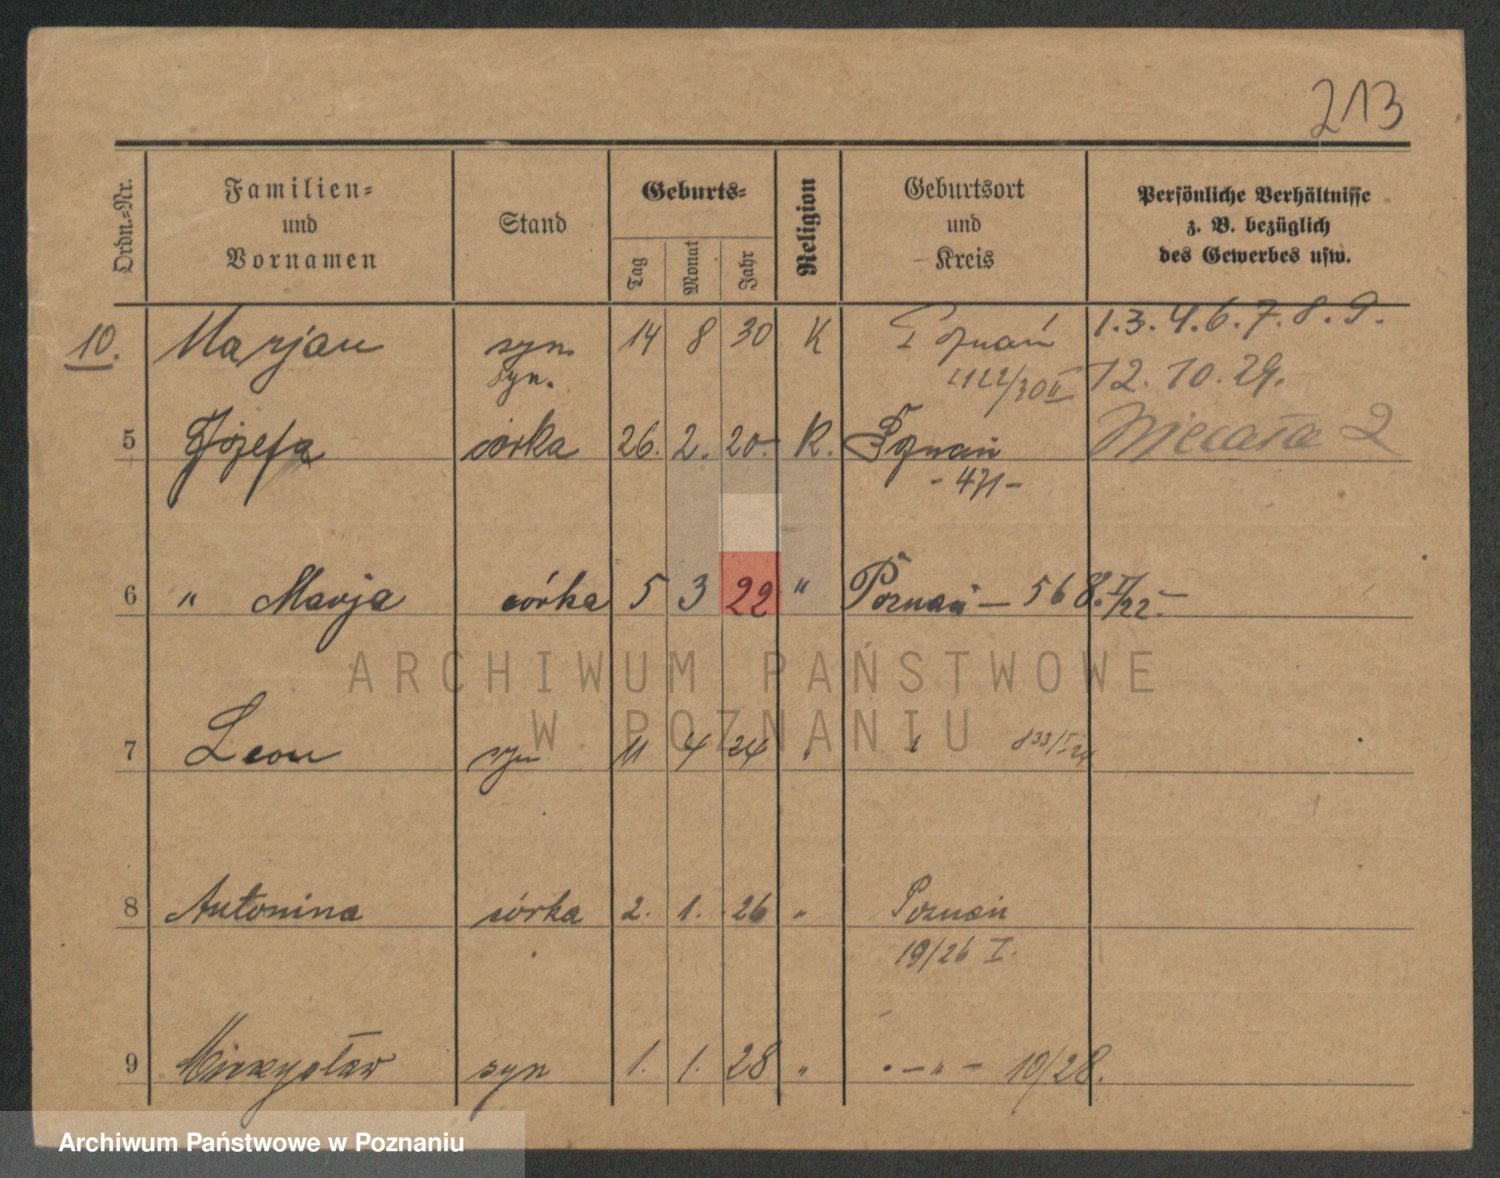 213
Ordn.-Nr.
Familien- und Vornamen
Stand
Geburts-
Tag Monat Jahr
Religion
Geburtsort und Kreis
Persönliche Verhältnisse
z. B. bezüglich
des Gewerbes usw.
10. Marjan syn 14 8 30 K Poznań 1.3.4.6.7.8.9.
syn. 1122/30 II 12.10.29.
5 Józefa córka 26. 2. 20 K. Poznań
-471-
6 " Marja córka 5 3 22 " Poznań — 568. I/22. —
7 Leon syn 11 4 24 " " 833/I 24
8 Antonina córka 2. 1. 26 " Poznań
19/26 I.
9 Mieczysław syn 1. 1. 28 " - " - 10/28.
ARCHIWUM PAŃSTWOWE
W POZNANIU
Archiwum Państwowe w Poznaniu